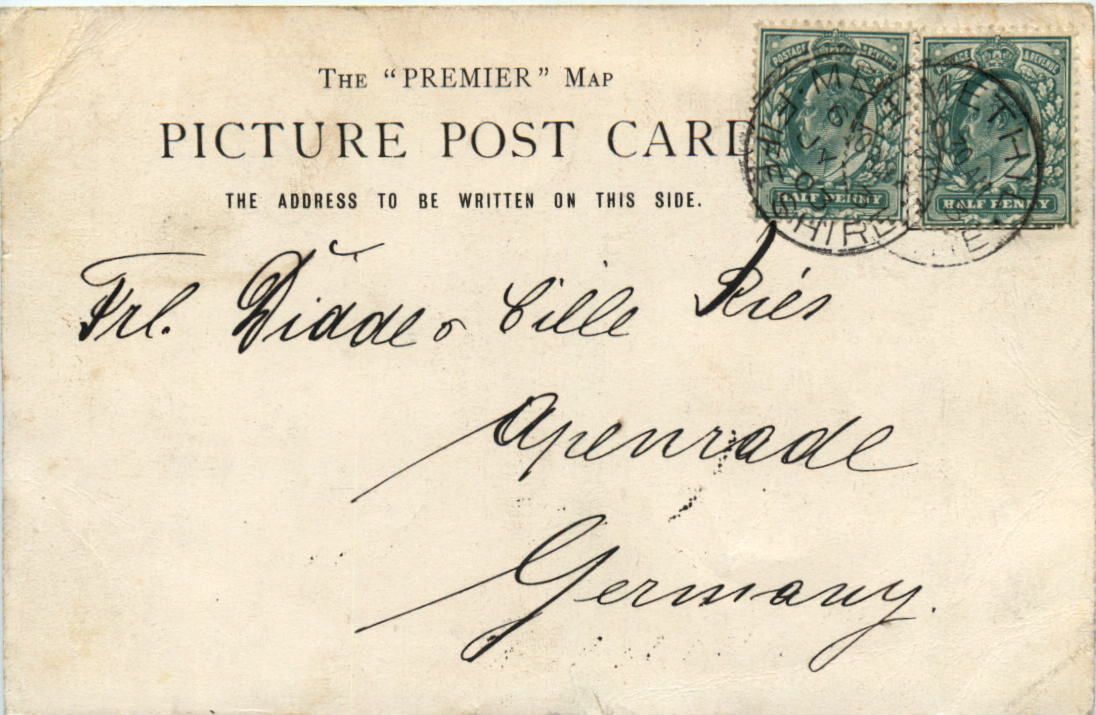 THE "PREMIER" MAP
PICTURE POST CARD
THE ADDRESS TO BE WRITTEN ON THIS SIDE.
POSTAGE & REVENUE
HALF PENNY
POSTAGE & REVENUE
HALF PENNY
METHIL
FIFESHIRE
JA
03
Frl. Didde o Cille Riés
Apenrade
Germany.